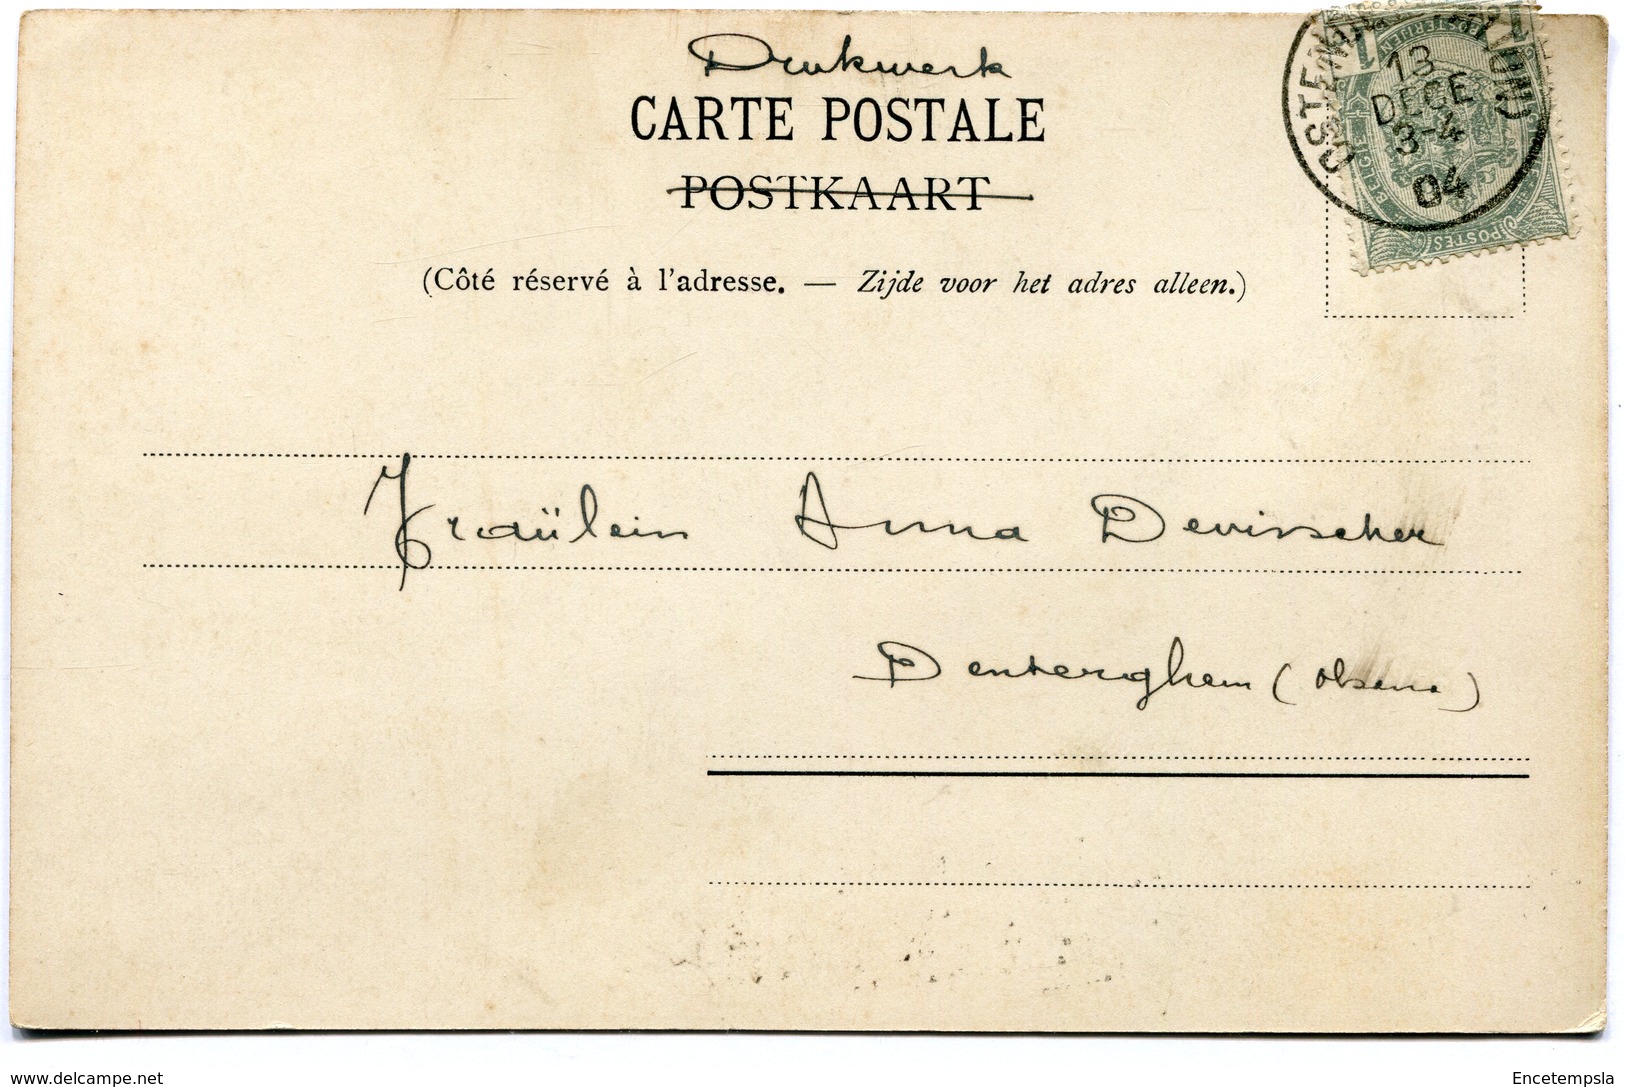 Drukwerk
CARTE POSTALE
POSTKAART
(Côté réservé à l'adresse. — Zijde voor het adres alleen.)
13
DECE
3-4
04
POSTES
Fraülein Anna Devisscher
Denterghem (
www.delcampe.net
Encetempsla